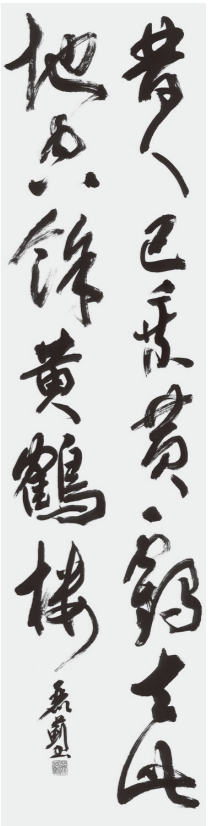 昔人已乘黄鶴去此
地空餘黄鶴樓